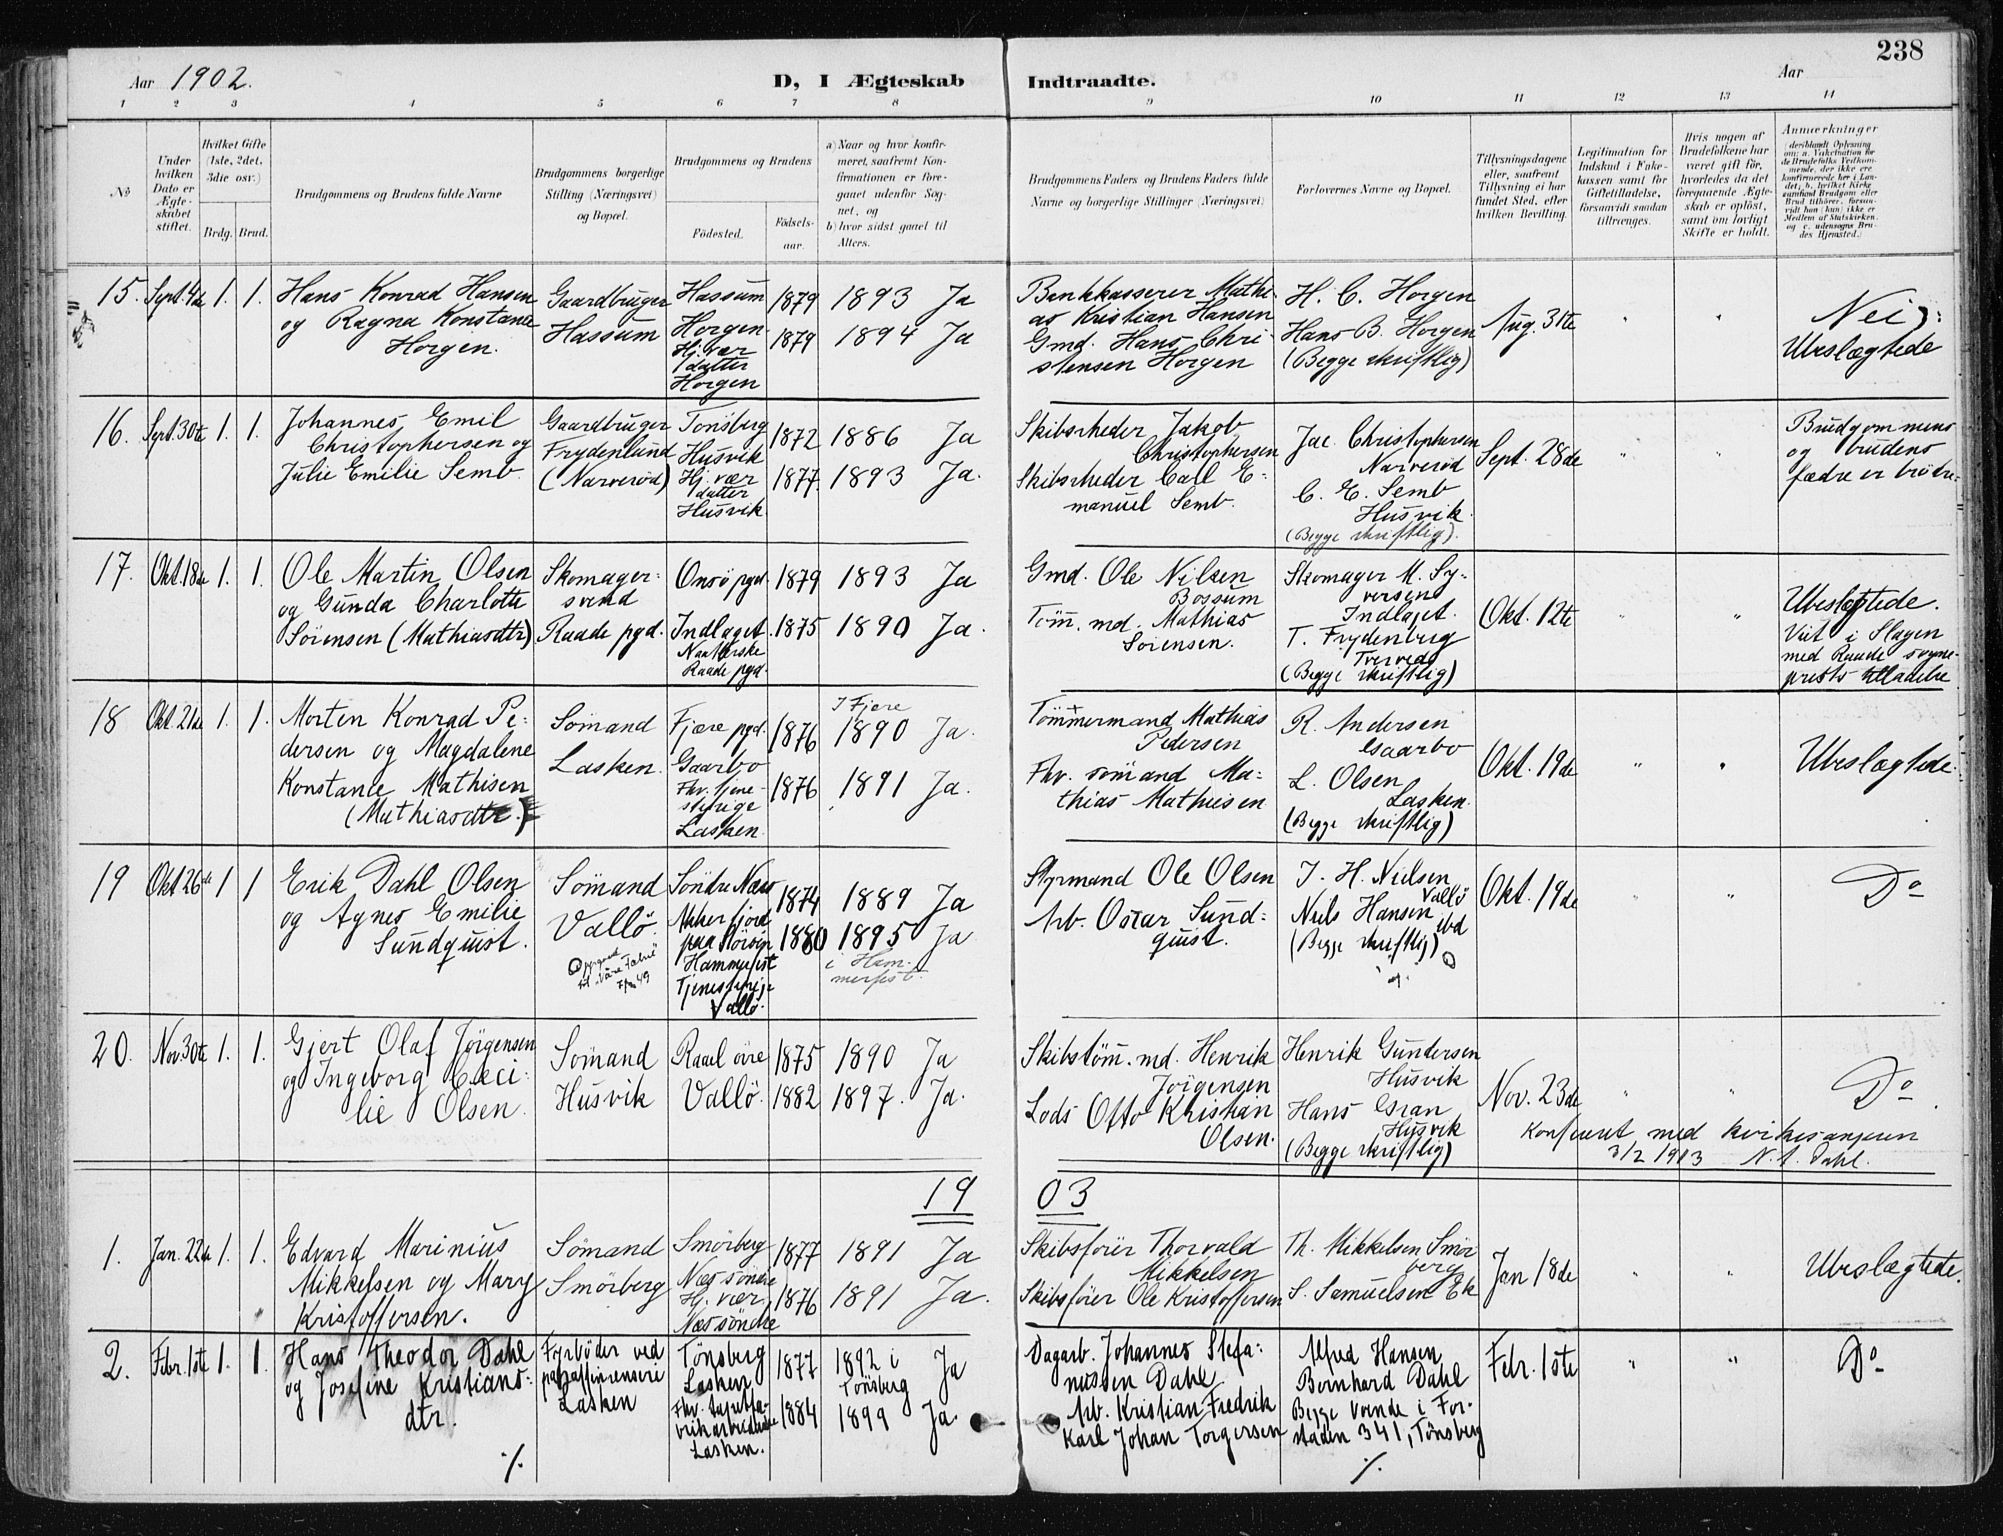 238
Aar 1902.
D, I Ægteskab Indtraadte.
Aar
1 2 3 4 5 6 7 8 9 10 11 12 13 14
No
Under hvilken Dato er Ægteskabet stiftet.
Hvilket Gifte (1ste, 2det, 3die osv.)
Brdg. Brud.
Brudgommens og Brudens fulde Navne
Brudgommens borgerlige Stilling (Næringsvei) og Bopæl.
Brudgommens og Brudens
Fødested.
Fødselsaar.
a) Naar og hvor konfirmeret, saafremt Konfirmationen er foregaaet udenfor Sognet, og
b) hvor sidst gaaet til Alters.
Brudgommens Faders og Brudens Faders fulde Navne og borgerlige Stillinger (Næringsvei)
Forlovernes Navne og Bopæl.
Tillysningsdagene eller, saafremt Tillysning ei har fundet Sted, efter hvilken Bevilling.
Legitimation for Indskud i Enkekassen samt for Giftetilladelse, forsaavidt saadan tiltrænges.
Hvis nogen af Brudefolkene har været gift før, hvorledes da det foregaaende Ægteskab er opløst, samt om lovligt Skifte er holdt.
Anmærkninger (deriblandt Oplysning om: a. Vakcination for de Brudefolks Vedkommende, der ikke ere konfirmerede her i Landet; b. hvilket Kirkesamfund Brudgom eller Brud tilhører, forsaavidt han (hun) ikke er Medlem af Statskirken, og c. udensogns Brudes Hjemsted.)
15. Sept. 4de 1. 1.
Hans Konrad Hansen
og Ragna Konstance
Horgen.
Gaardbruger
Hassum
Hassum
Horgen
Hj. vær.
datter
Horgen
1879 1893 Ja
1879 1894 Ja
Bankkasserer Mathi-
as Kristian Hansen
Gmd. Hans Chri-
stensen Horgen
H. C. Horgen
Hans B. Horgen
(Begge skriftlig)
Aug. 31te " "
Nei):
Ubeslægtede
16. Sept. 30te 1. 1.
Johannes Emil
Christophersen og
Julie Emilie Semb.
Gaardbruger
Frydenlund
(Narverød)
Tønsberg
Husvik
Hj. vær
datter
Husvik.
1872 1886 Ja
1877. 1893 Ja.
Skibsrheder Jakob
Christophersen
Skibsrheder Carl E-
manuel Semb.
Jac. Christophersen
Narverød
C. E. Semb
Husvik.
(Begge skriftlig).
Sept. 28de " "
Brudgommens
og brudens
fædre er brødre.
17. Okt. 18de 1. 1.
Ole Martin Olsen
og Gunda Charlotte
Sørensen (Mathiasdtr)
Skomager-
svend
Raade pgd.
Onsø pgd.
Indlaget.
Raade pgd.
1879 1893 Ja
1875 1890 Ja.
Gmd. Ole Nilsen
Bossum
Tøm. md. Mathias
Sørensen.
Skomager M. Sy-
versen
Indlaget.
T. Frydenberg
Tverved
(Begge skriftlig)
Okt. 12te " "
Ubeslægtede.
Viet i Slagen
med Raade sogne-
prests tilladelse
18 Okt. 21de 1. 1.
Morten Konrad Pe-
dersen og Magdalene
Konstance Mathisen
(Mathiasdtr.)
Sømand
Lasken.
Fjære pgd.
Gaarbo
Fhv. tjene-
stepige
Lasken.
I Fjære
1876 1890 Ja.
1876 1891 Ja.
Tømmermand Mathias
Pedersen
Fhv. sømand Ma-
thias Mathiesen
R. Andersen
Gaarbo
L. Olsen
Lasken.
(Begge skriftlig)
Okt. 19de " "
Ubeslægtede.
19 Okt. 26de 1 1
Erik Dahl Olsen
og Agnes Emilie
Sundquist.
Sømand
Vallø.
Søndre Næs
Akkerfjord
paa Sørøen
Hammerfest
Tjenestepige
Vallø.
1874 1889 Ja
1880 1895 Ja
i Ham-
merfest.
Styrmand Ole Olsen
Arb. Oscar Sund-
quist.
J. H. Nielsen
Vallø
Niels Hansen ibd
(Begge skriftlig)
Okt. 19de " "
Do
20. Nov. 30te 1. 1.
Gjert Olaf Jørgensen
og Ingeborg Ceci-
lie Olsen.
Sømand
Husvik
Rauel øvre
Vallø.
1875 1890 Ja
1882 1897. Ja.
Skibstøm. md. Henrik
Jørgensen
Lods Otto Kristian
Olsen.
Henrik Gundersen
Husvik
Hans Gran
Husvik
(Begge skriftlig)
Nov. 23de " "
Do
Konfereret med kirkesangeren
3/2 1903 N. A. Dahl.
1903
1. Jan. 22de 1. 1.
Edvard Marinius
Mikkelsen og Mary
Kristoffersen.
Sømand
Smørberg
Smørberg
Næs søndre
Hj. vær.
Næs søndre
1877 1891 Ja
1876 1891 Ja.
Skibsfører Thorvald
Mikkelsen
Skibsfører Ole Kristoffersen
Th. Mikkelsen Smør
berg
S. Samuelsen Ek
Jan 18de " "
Ubeslægtede.
2. Febr. 1ste 1. 1.
Hans Theodor Dahl
og Josefine Kristians-
dtr.
Fyrbøder ved
paraffinrenseri
Lasken
Tønsberg
Lasken
Fhv. tapetfa-
brikarbeiderske
Lasken.
1877 1892 i Ja
Tønsberg
1884 1899 Ja.
Dagarb. Johannes Stefa-
nussen Dahl.
Arb. Kristian Fredrik
Karl Johan Torgersen
Alfred Hansen
Bernhard Dahl
Begge boende i For-
staden 341, Tønsberg
Febr. 1ste " "
Do
./. ./.